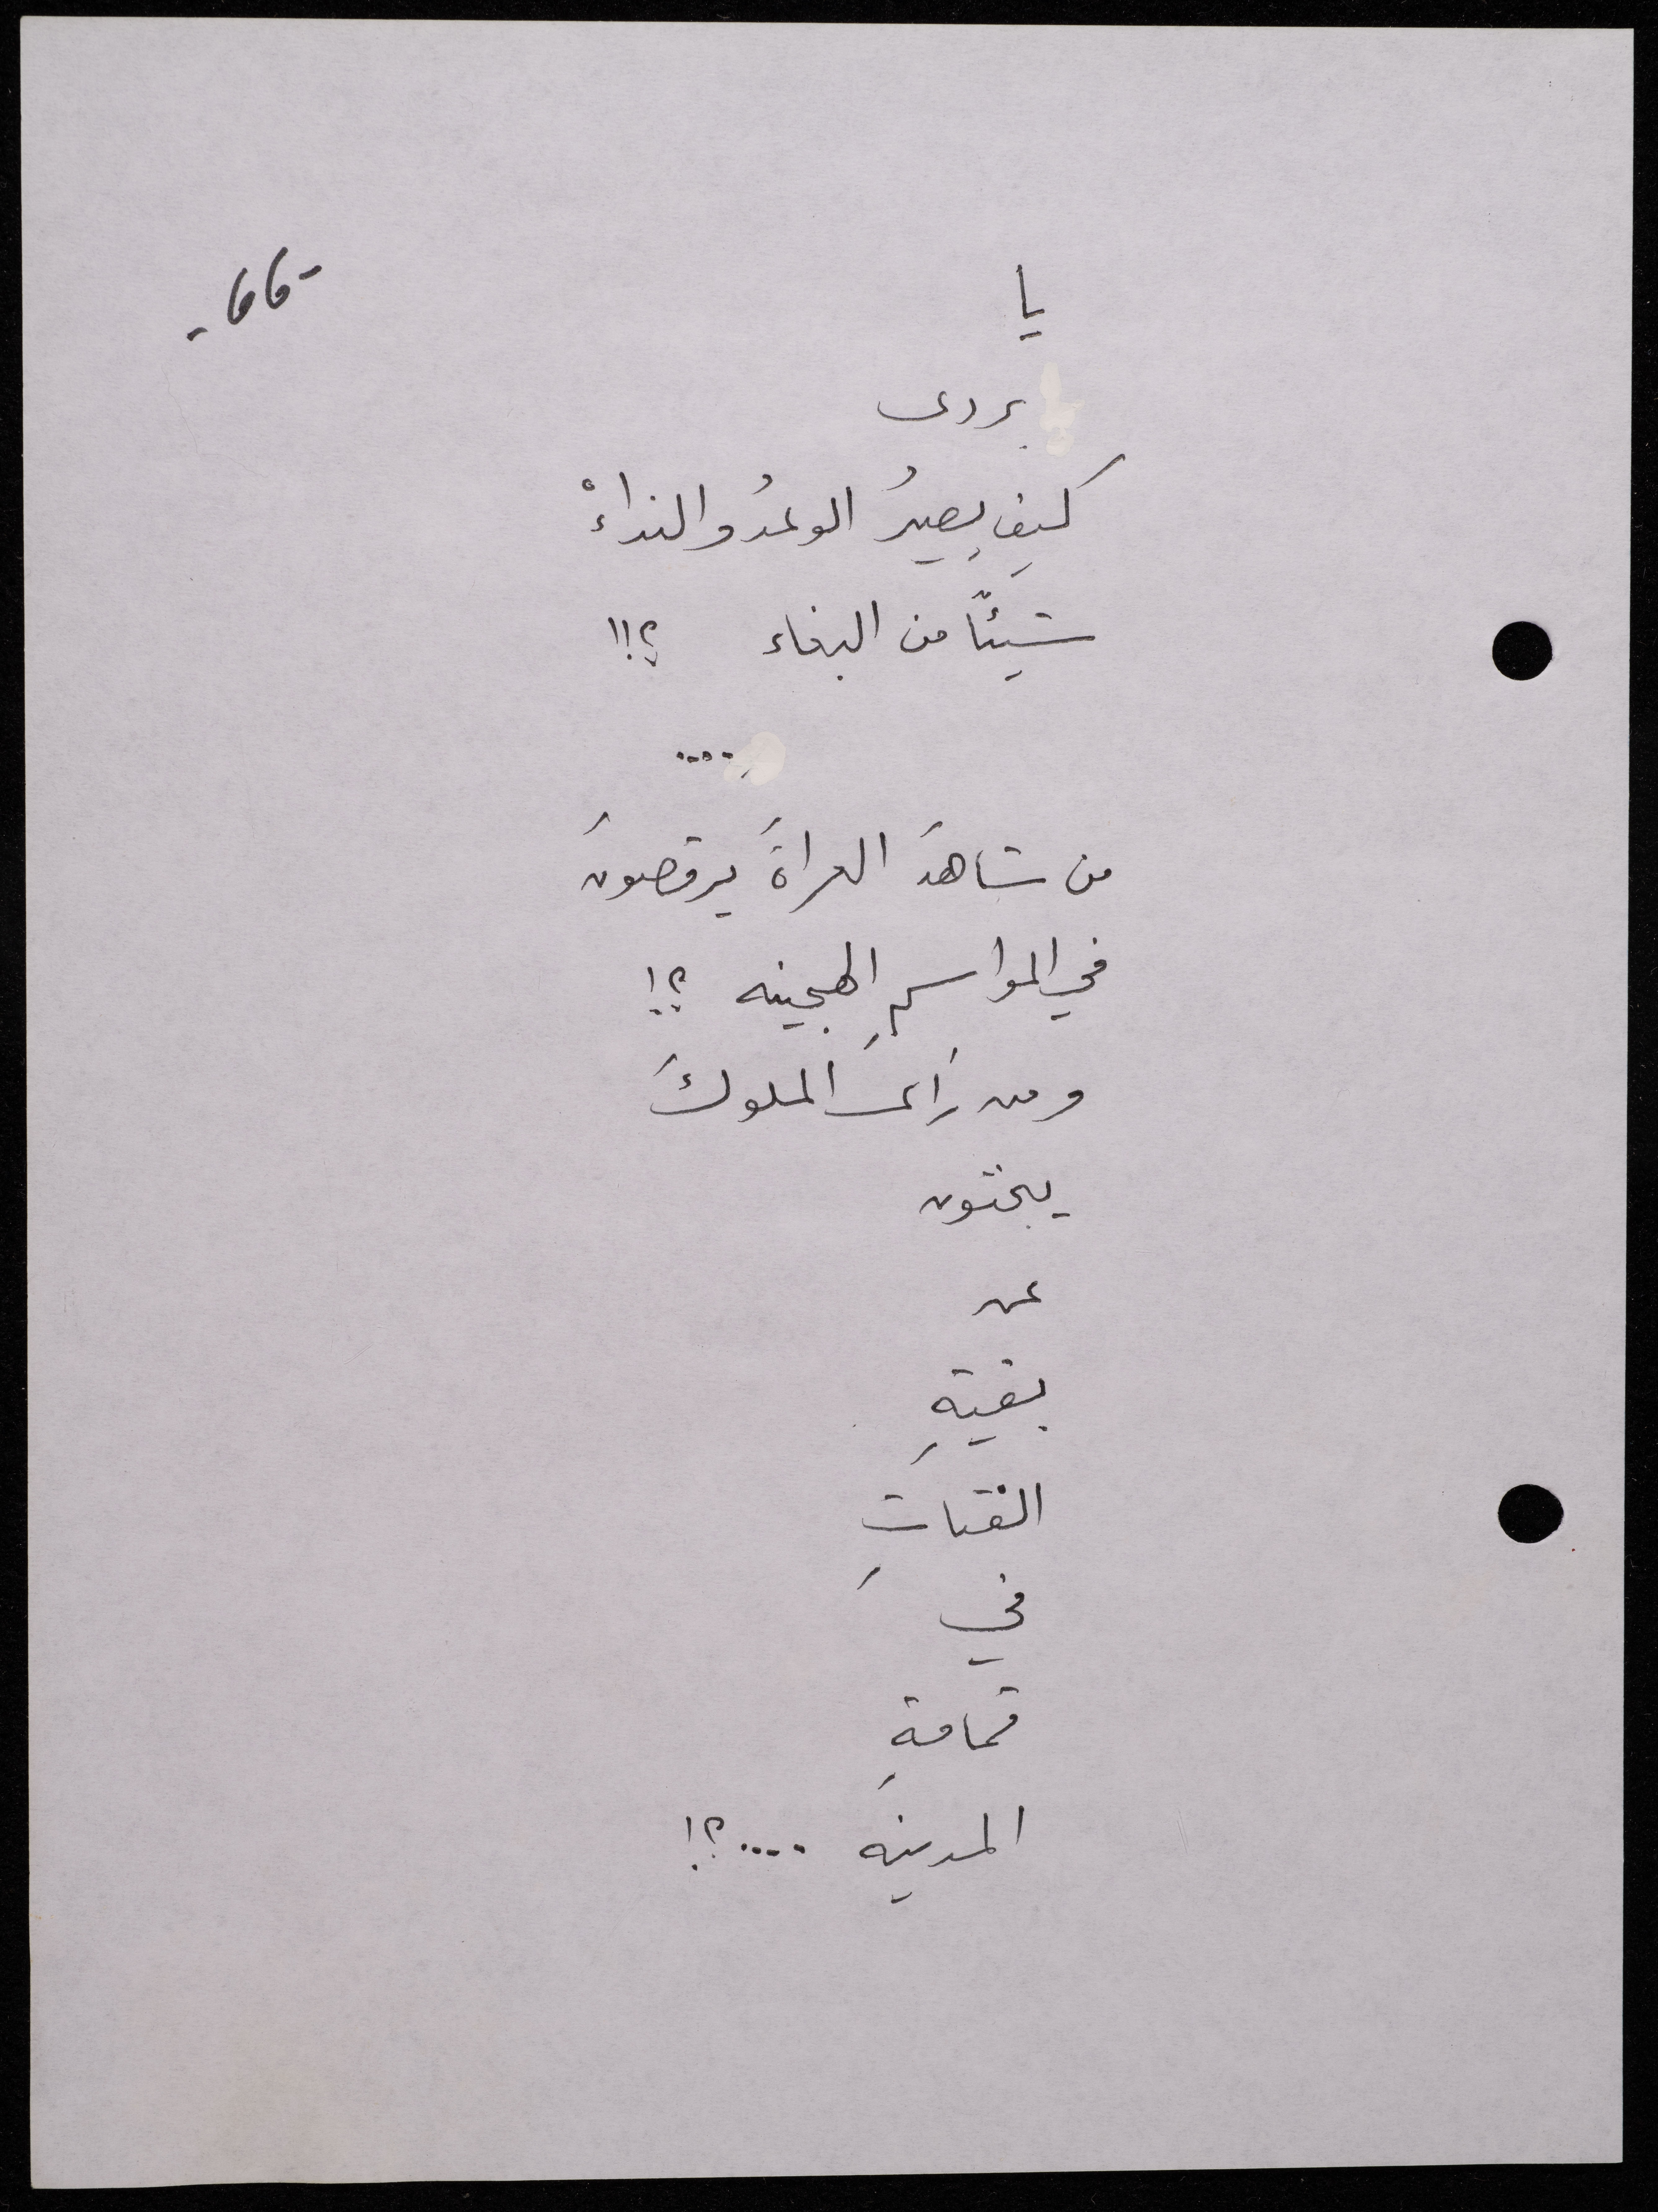 -٩٩-
يا
بردى
كيف يصيرُ الوعدُ والنداءْ
شيئًا من البغاء ؟!!
....
من شاهدَ العراةَ يرقصونَ
في المواسمِ الهجينه ؟!
ومن رَأى الملوكَ
يبحثون
عن
بقيةِ
الفتاتِ
في
قمامةِ
المدينه ....؟!